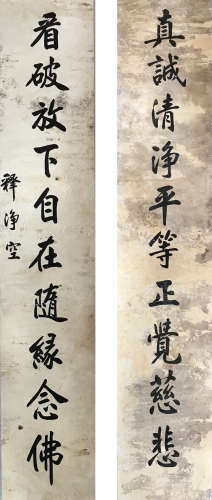 真誠清淨平等正覺慈悲
看破放下自在隨緣念佛
釋淨空